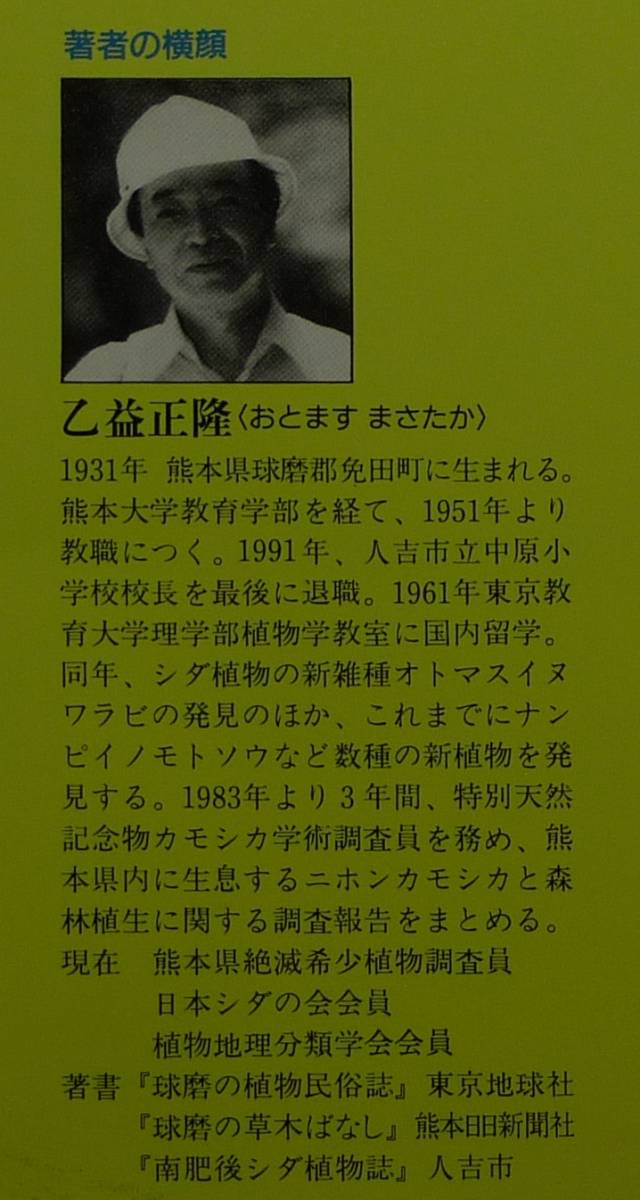 著者の横顔
乙益正隆〈おとます まさたか〉
1931年 熊本県球磨郡免田町に生まれる。
熊本大学教育学部を経て、1951年より
教職につく。1991年、人吉市立中原小
学校校長を最後に退職。1961年東京教
育大学理学部植物学教室に国内留学。
同年、シダ植物の新雑種オトマスイヌ
ワラビの発見のほか、これまでにナン
ピイノモトソウなど数種の新植物を発
見する。1983年より3年間、特別天然
記念物カモシカ学術調査員を務め、熊
本県内に生息するニホンカモシカと森
林植生に関する調査報告をまとめる。
現在 熊本県絶滅希少植物調査員
日本シダの会会員
植物地理分類学会会員
著書『球磨の植物民俗誌』東京地球社
『球磨の草木ばなし』熊本日日新聞社
『南肥後シダ植物誌』人吉市